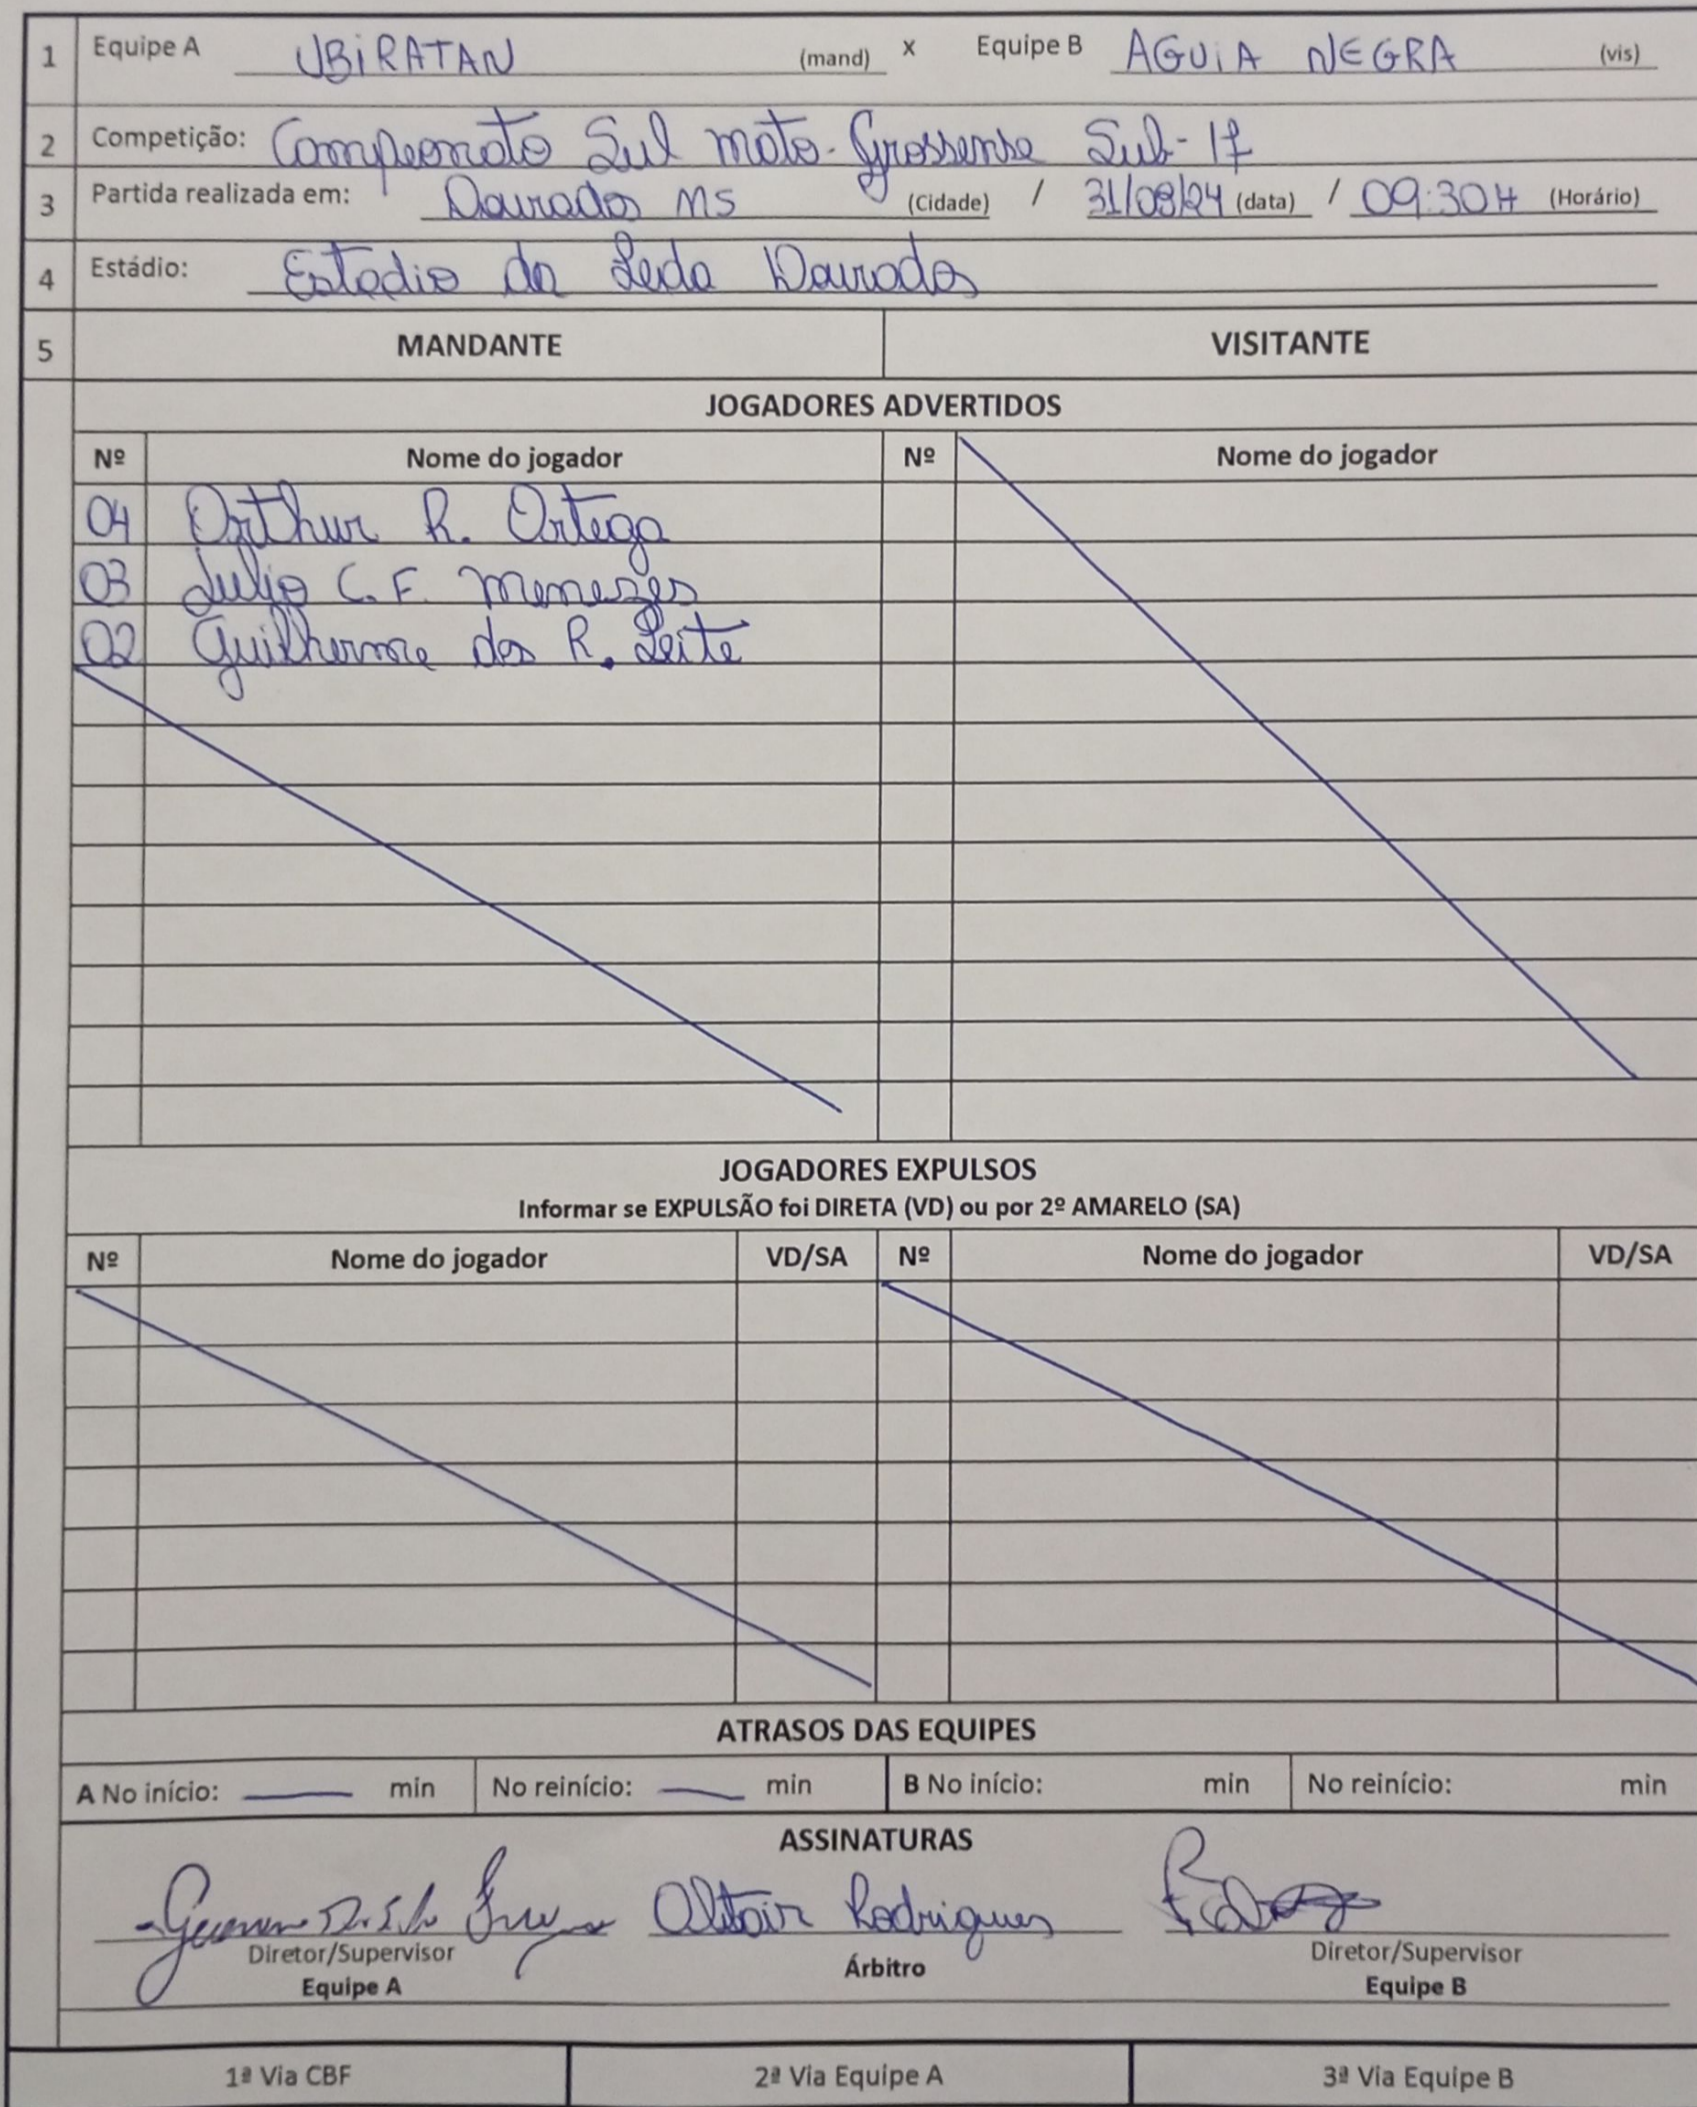 1 Equipe A UBIRATAN (mand) x Equipe B AGUIA NEGRA (vis)
2 Competição: Campeonato Sul mato-Grossense Sub-17
3 Partida realizada em: Dourados MS (Cidade) / 31/08/24 (data) / 09:30H (Horário)
4 Estádio: Estadio da Leda Dourados
5 MANDANTE VISITANTE
JOGADORES ADVERTIDOS
Nº Nome do jogador Nº Nome do jogador
04 Arthur R. Ortega
03 Julio C. F. Menezes
02 Guilherme dos R. Leite
JOGADORES EXPULSOS
Informar se EXPULSÃO foi DIRETA (VD) ou por 2º AMARELO (SA)
Nº Nome do jogador VD/SA Nº Nome do jogador VD/SA
ATRASOS DAS EQUIPES
A No início: min No reinício: min B No início: min No reinício: min
ASSINATURAS
Altair Rodrigues
Diretor/Supervisor Árbitro Diretor/Supervisor
Equipe A Equipe B
1ª Via CBF 2ª Via Equipe A 3ª Via Equipe B